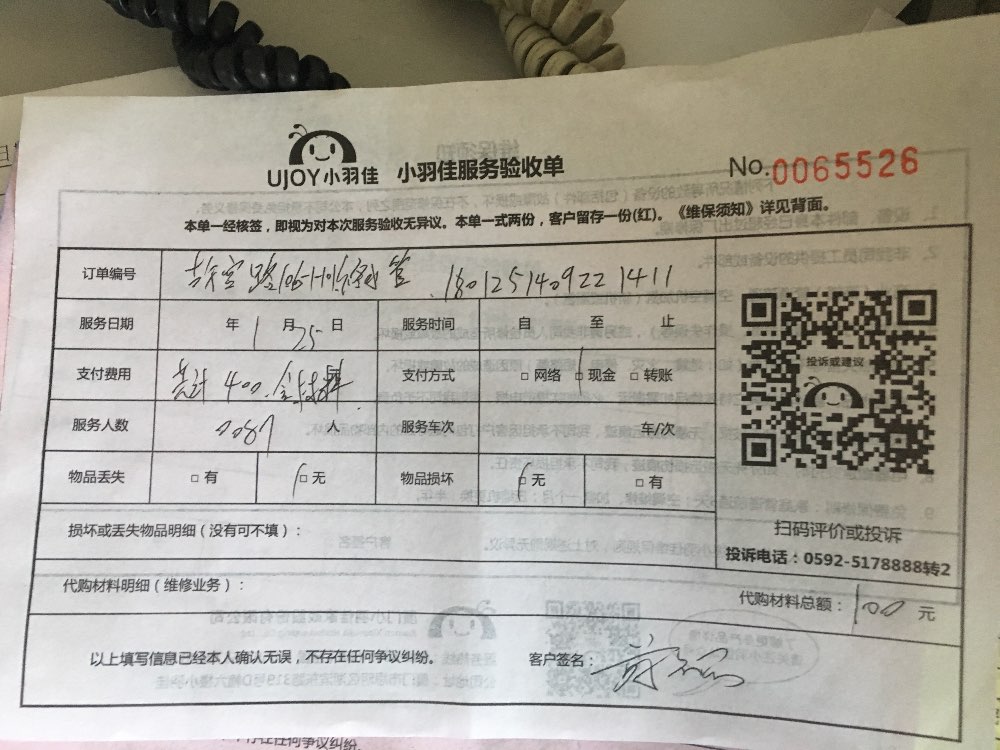 UJOY小羽佳 小羽佳服务验收单 No.0065526
本单一经核签，即视为对本次服务验收无异议。本单一式两份，客户留存一份(红)。《维保须知》详见背面。
订单编号 180125140922 1411
服务日期 年 1 月 25 日 服务时间 自 至 止
支付费用 共计 400. 支付方式 □ 网络 □ 现金 □ 转账
服务人数 0087 人 服务车次 车/次
物品丢失 □ 有 □ 无 物品损坏 □ 无 □ 有
投诉或建议
扫码评价或投诉
投诉电话：0592-5178888转2
损坏或丢失物品明细（没有可不填）：
代购材料明细（维修业务）：
代购材料总额：100 元
以上填写信息已经本人确认无误，不存在任何争议纠纷。 客户签名：